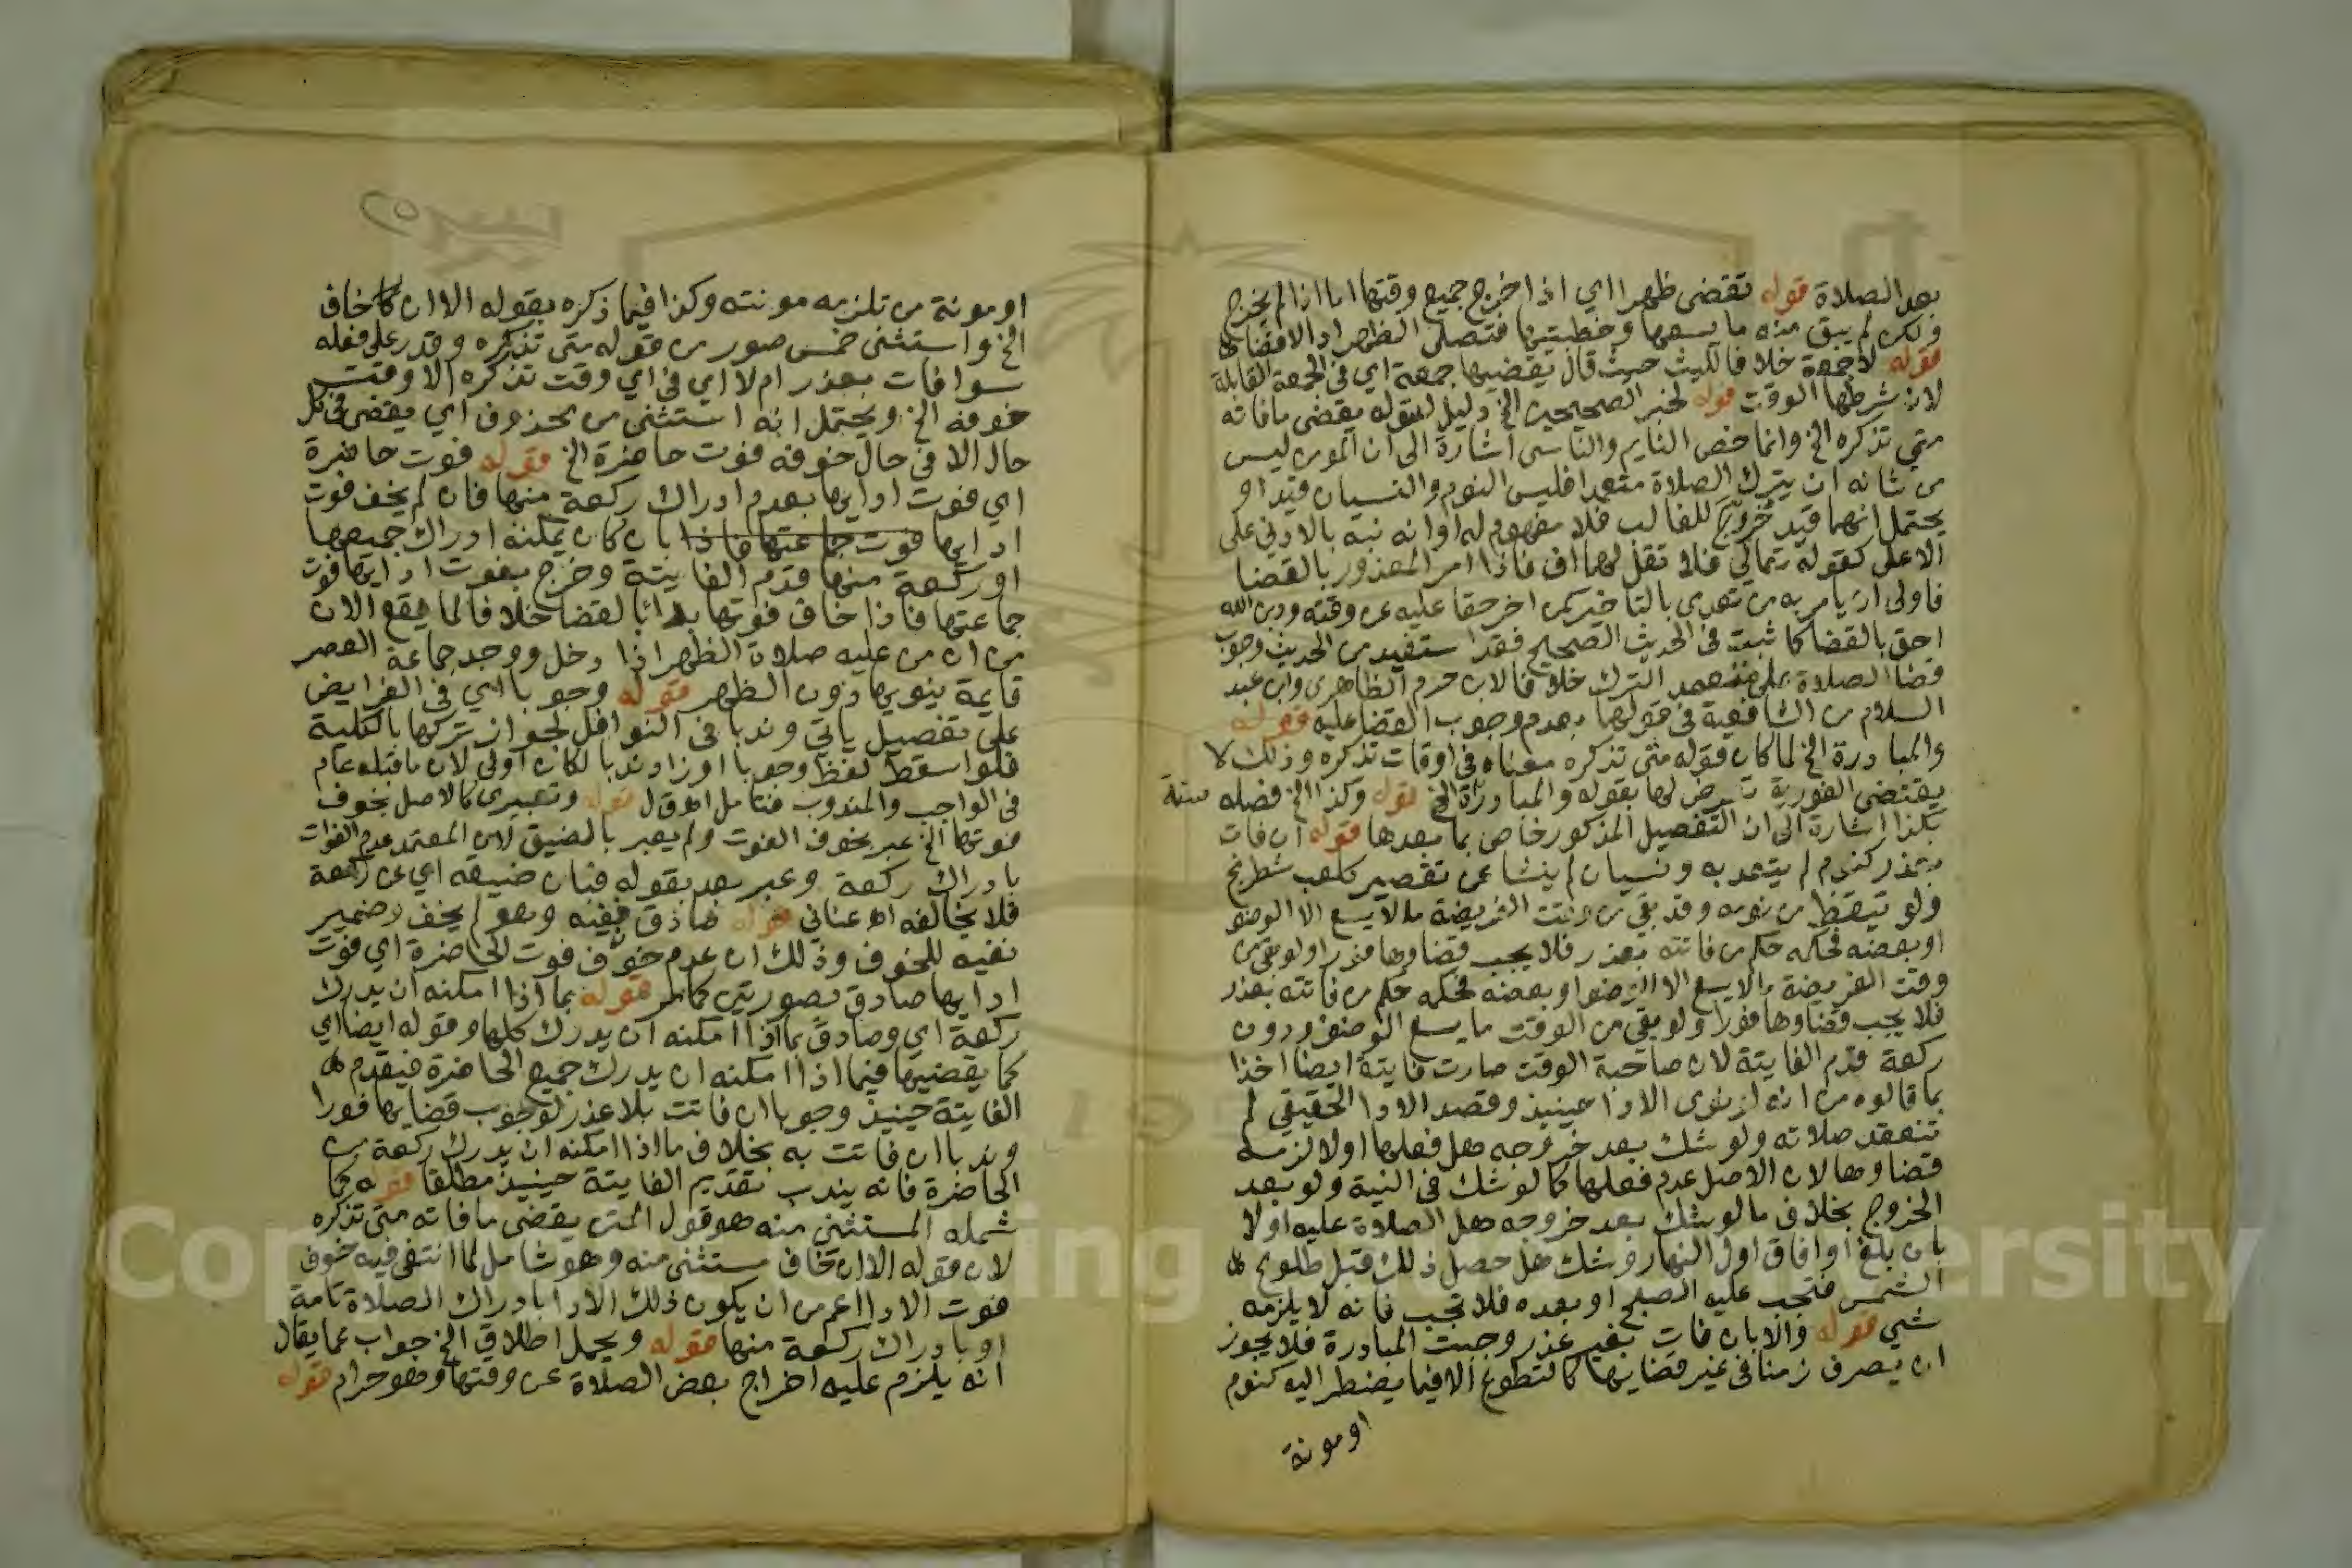 بعد الصلاة قوله تقضى ظهرا اي اذا خرج جميع وقتها اما اذا لم يخرج
ولكن لم يبق منه ما يسعها وخطبتيها فتصلى الظهر ادا لا قضا
قوله لا جمعة خلافا لليث حيث قال تقضيها جمعة اي في الجمعة القابلة
لان شرطها الوقت قوله لخبر الصحيحين الخ دليل لقوله يقضى ما فاته
متى تذكره الخ وانما خص النايم والناسى اشارة الى ان المومن ليس
من شانه ان يترك الصلاة متعمدا فليس النوم والنسيان قيدا و
يحتمل انهما قيد خرج للغالب فلا مفهوم له او انه نبه بالادنى على
الاعلى كقوله تعالى فلا تقل لهما اف فاذا امر المعذور بالقضا
فاولى ان يامر به من تعدى بالتاخير كمن اخر حقا عليه عن وقته ودين الله
احق بالقضا كما ثبت في الحديث الصحيح فقد استفيد من الحديث وجوب
قضا الصلاة على متعمد الترك خلافا لابن حزم الظاهرى وابن عبد
السلام من الشافعية في قولهما بعدم وجوب القضا عليه قوله
والمبادرة الخ لما كان قوله متى تذكره معناه في اوقات تذكره وذلك لا
يقتضى الفورية تعرض لها بقوله والمبادرة الخ قوله وكذا الخ فصله
بكذا اشارة الى ان التفصيل المذكور خاص بما بعدها قوله ان فات
بعذر كنوم لم يتعد به ونسيان لم ينشا عن تقصير كلعب شطرنج
ولو تيقظ من نومه وقد بقي من وقت الفريضة ما لا يسع الا الوضو
او بعضه فحكمه حكم من فاتته بعذر فلا يجب قضاوها فورا ولو بقي من
وقت الفريضة ما لا يسع الا الوضو او بعضه فحكمه حكم من فاتته بعذر
فلا يجب قضاوها فورا ولو بقي من الوقت ما يسع الوضو ودون
ركعة قدم الفايتة لان صاحبة الوقت صارت فايتة ايضا اخذا
بما قالوه من انه لو نوى الادا حينيذ وقصد الادا الحقيقي لم
تنعقد صلاته ولو شك بعد خروجه هل فعلها اولا لزمه
قضاوها لان الاصل عدم فعلها كما لو شك في النية ولو بعد
الخروج بخلاف ما لو شك بعد خروجه هل الصلاة عليه اولا
بان بلغ او افاق اول النهار وشك هل حصل ذلك قبل طلوع
الشمس فتجب عليه الصبح او بعده فلا تجب فانه لا يلزمه
شي قوله والا بان فات بغير عذر وجبت المبادرة فلا يجوز
ان يصرف زمنا في غير قضايها كالتطوع الا فيما يضطر اليه كنوم
او مونة
او مونة من تلزمه مونته وكذا فيما ذكره بقوله الا ان خاف
الخ واستثنى خمس صور من قوله متى تذكره وقدر على فعله
سوا فات بعذر ام لا اي في اي وقت تذكره الا وقت
خوفه الخ ويحتمل انه استثنى من محذوف اي يقضى في كل
حال الا في حال خوفه فوت حاضرة الخ قوله فوت حاضرة
اي فوت ادايها بعدم ادراك ركعة منها فان لم يخف فوت
ادايها فوت جماعتها فاذا بان كان يمكنه ادراك جميعها
او ركعة منها قدم الفايتة وخرج بفوت ادايها فوت
جماعتها فاذا خاف فوتها بدا بالقضا خلافا لما يقع الان
من ان من عليه صلاة الظهر اذا دخل ووجد جماعة العصر
قايمة ينويها دون الظهر قوله وجوبا اي في الفرايض
على تفصيل ياتي وندبا في النوافل لجواز تركها بالكلية
فلو اسقط لفظ وجوبا او زاد وندبا لكان اولى لان ما قبله عام
في الواجب والمندوب فتامل قوله وتعبيرى كالاصل بخوف
فوتها الخ عبر بخوف الفوت ولم يعبر بالضيق لان المعتمد عدم الفوات
بادراك ركعة وعبر بعد بقوله فبان ضيقه اي عن ركعة
فلا يخالفه عنانى قوله صادق نفيه وهو لم يخف وضمير
نفيه للخوف وذلك ان عدم خوف فوت الحاضرة اي فوت
ادايها صادق بصورتين كما مر قوله بما اذا امكنه ان يدرك
ركعة اي وصادق بما اذا امكنه ان يدرك كلها وقوله ايضا اي
كما يقضيها فيما اذا امكنه ان يدرك جميع الحاضرة فيقدم
الفايتة حينيذ وجوبا ان فاتت بلا عذر لوجوب قضايها فورا
وندبا ان فاتت به بخلاف ما اذا امكنه ان يدرك ركعة من
الحاضرة فانه يندب تقديم الفايتة حينيذ مطلقا قوله كما
شمله المستثنى منه هو قول المتن يقضى ما فاته متى تذكره
لان قوله الا ان خاف مستثنى منه وهو شامل لما انتفى فيه خوف
فوت الادا اعم من ان يكون ذلك الادا بادراك الصلاة تامة
او بادراك ركعة منها قوله ويحمل اطلاق الخ جواب عما يقال
انه يلزم عليه اخراج بعض الصلاة عن وقتها وهو حرام قوله